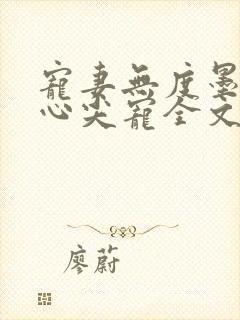 寵妻無度墨
心尖寵全文
廖蔚